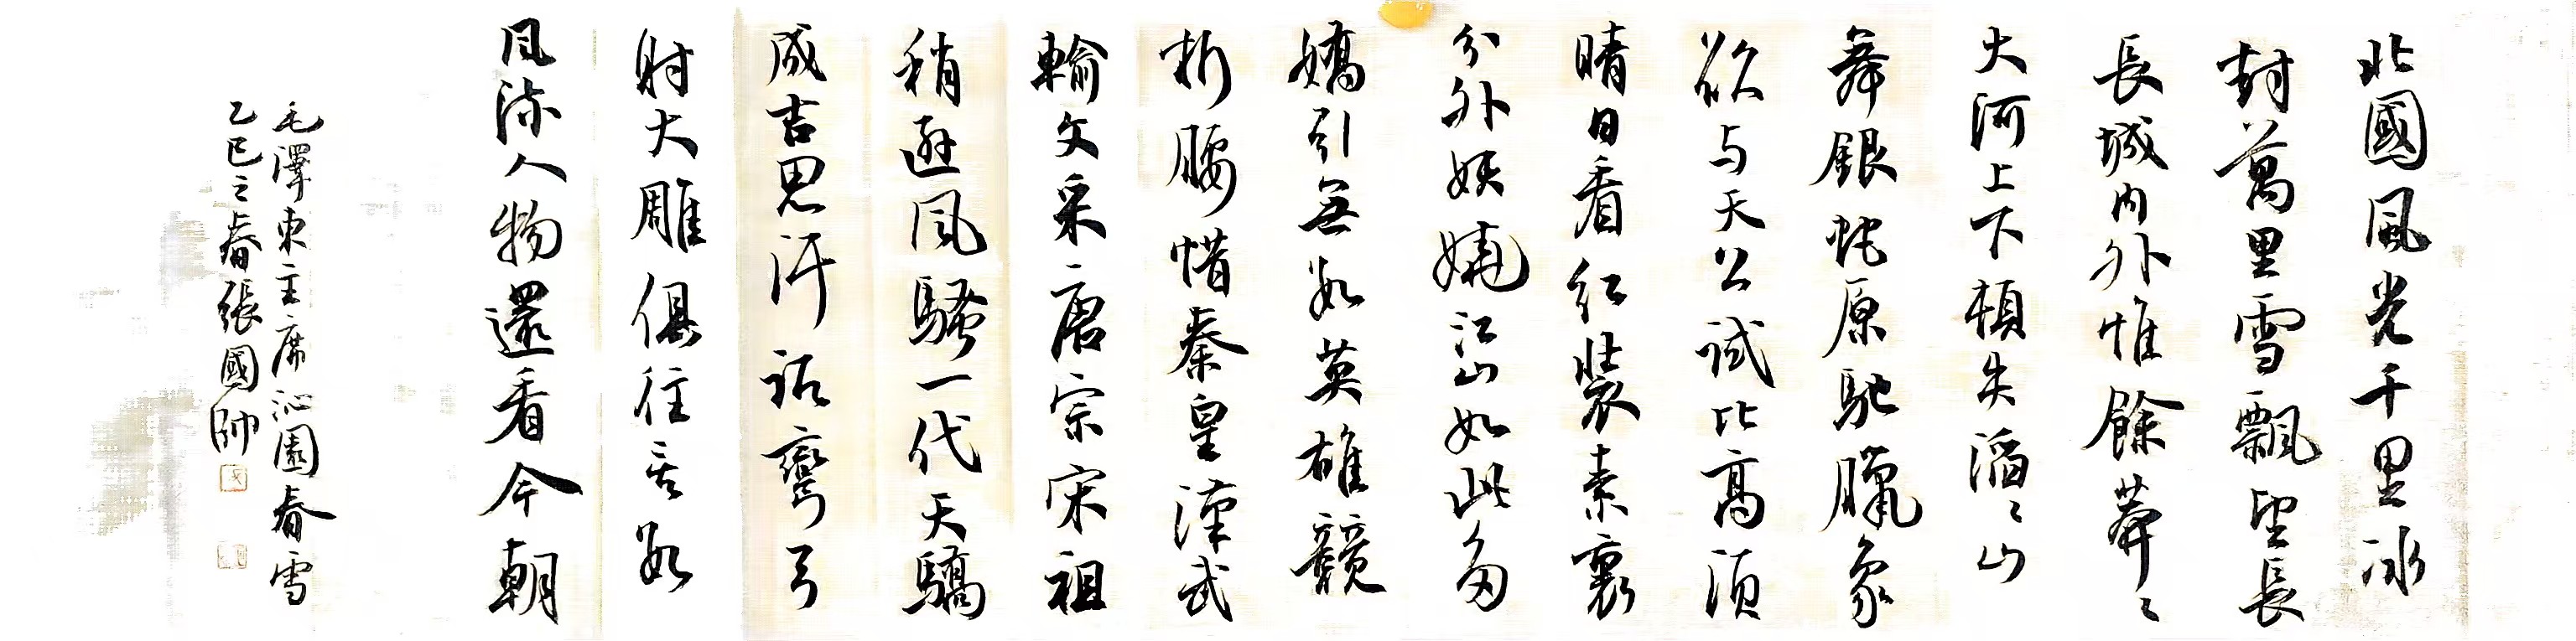 北國風光千里冰
封萬里雪飄望長
長城内外惟餘莽〻
大河上下頓失滔〻山
舞銀蛇原馳臘象
欲与天公試比高須
晴日看紅裝素裹
分外妖嬈江山如此多
嬌引無數英雄競
折腰惜秦皇漢武
輸文采唐宗宋祖
稍遜風騷一代天驕
成吉思汗彎弓
射大雕俱往矣數
風流人物還看今朝
毛澤東主席沁園春雪
乙巳之春張國帥